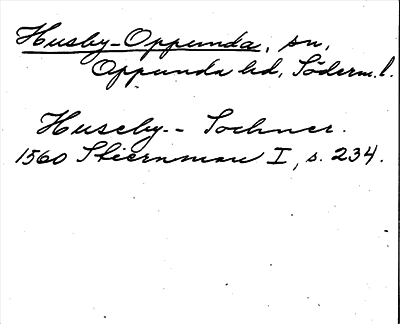 Husby-Oppunda, sn,
Oppunda hd, Söderm.l.
Huseby-- Sochner.
1560 Stiernman I, s. 234.